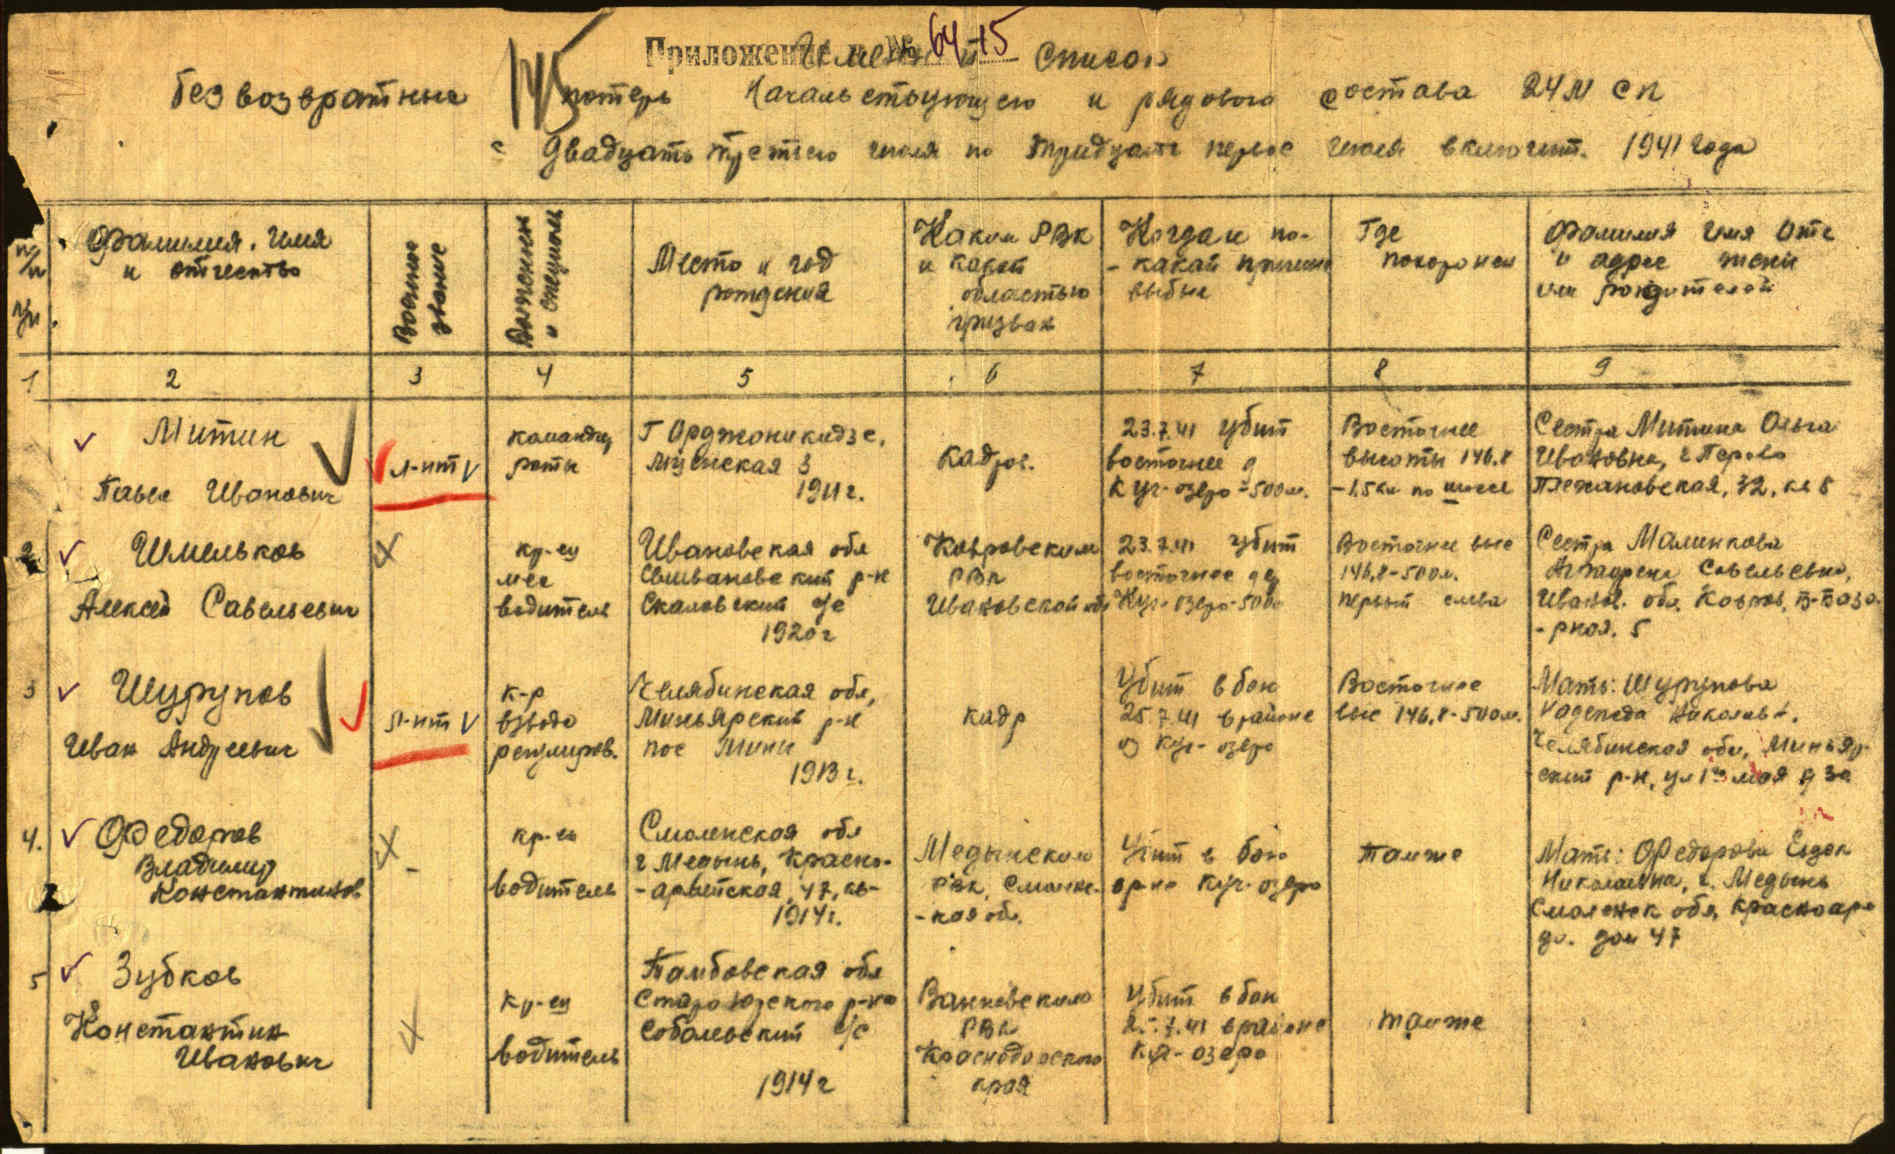 Приложение № 64 15
Именной список
145
безвозвратные потерь начальствующего и рядового состава 24 М СП
с двадцать третьего июля по тридцать первое июля включит. 1941 года
№/№ п/п
Фамилия, имя
и отчество
Военное
звание
Должность
и специаль
Место и год
рождения
Каким РВК
и какой
областью
призван
Когда и по
- какой причине
выбыл
Где
похоронен
Фамилия имя отч
и адрес жены
или родителей
1 2 3 4 5 6 7 8 9
Митин
Павел Иванович
л-нт V
командир
роты
Г Орджоникидзе,
3
1911 г.
кадров.
23.7.41 убит
восточнее д
Куг-озеро - 500 м.
Восточнее
высоты 146.8
- 1,5 км по шоссе
Сестра Митина Ольга
Ивановна, г Перово
Плехановская, 32, кв 5
2 Шмельков
Алексей Савельевич
кр-ец
мех
водитель
Ивановская обл
р-н
с/с
1920 г
Ковровским
РВК
Ивановской обл
23.7.41 убит
восточнее дер
Куг-озеро-500м
Восточнее выс
146,8-500м.
первый слева
Сестра Малинкова
Савельевна,
Иванов. обл. Ковров, Б-База-
-рная. 5
3 Шурупов
Иван Андреевич
л-нт V
к-р
взвода
регулиров.
Челябинская обл,
Миньярский р-н
пос
1913 г.
кадр
Убит в бою
25.7.41 в районе
Куг-озеро
Восточнее
выс 146,8-500м.
Мать: Шурупова
Надежда Николаев.
Челябинская обл, Миньяр-
ский р-н, ул 1го мая д
4. Федоров
Владимир
Константинов
кр-ец
водитель
Смоленская обл
г Медынь, Красно-
-армейская, 47, кв-
1914 г.
Медынским
РВК, Смолен-
-кая об.
Убит в бою
ор-не Куг-озеро
Там же
Мать: Федорова Евдок
Николаевна, г. Медынь
Смоленск обл, Красноарм
дом 47
5 Зубков
Константин
Иванович
кр-ец
водитель
Тамбовская обл
Староюрского р-на
Собольевский с/с
1914 г
Ванновским
РВК
Краснодарского
края
Убит в бою
25.7.41 в районе
Куг-озеро
там же